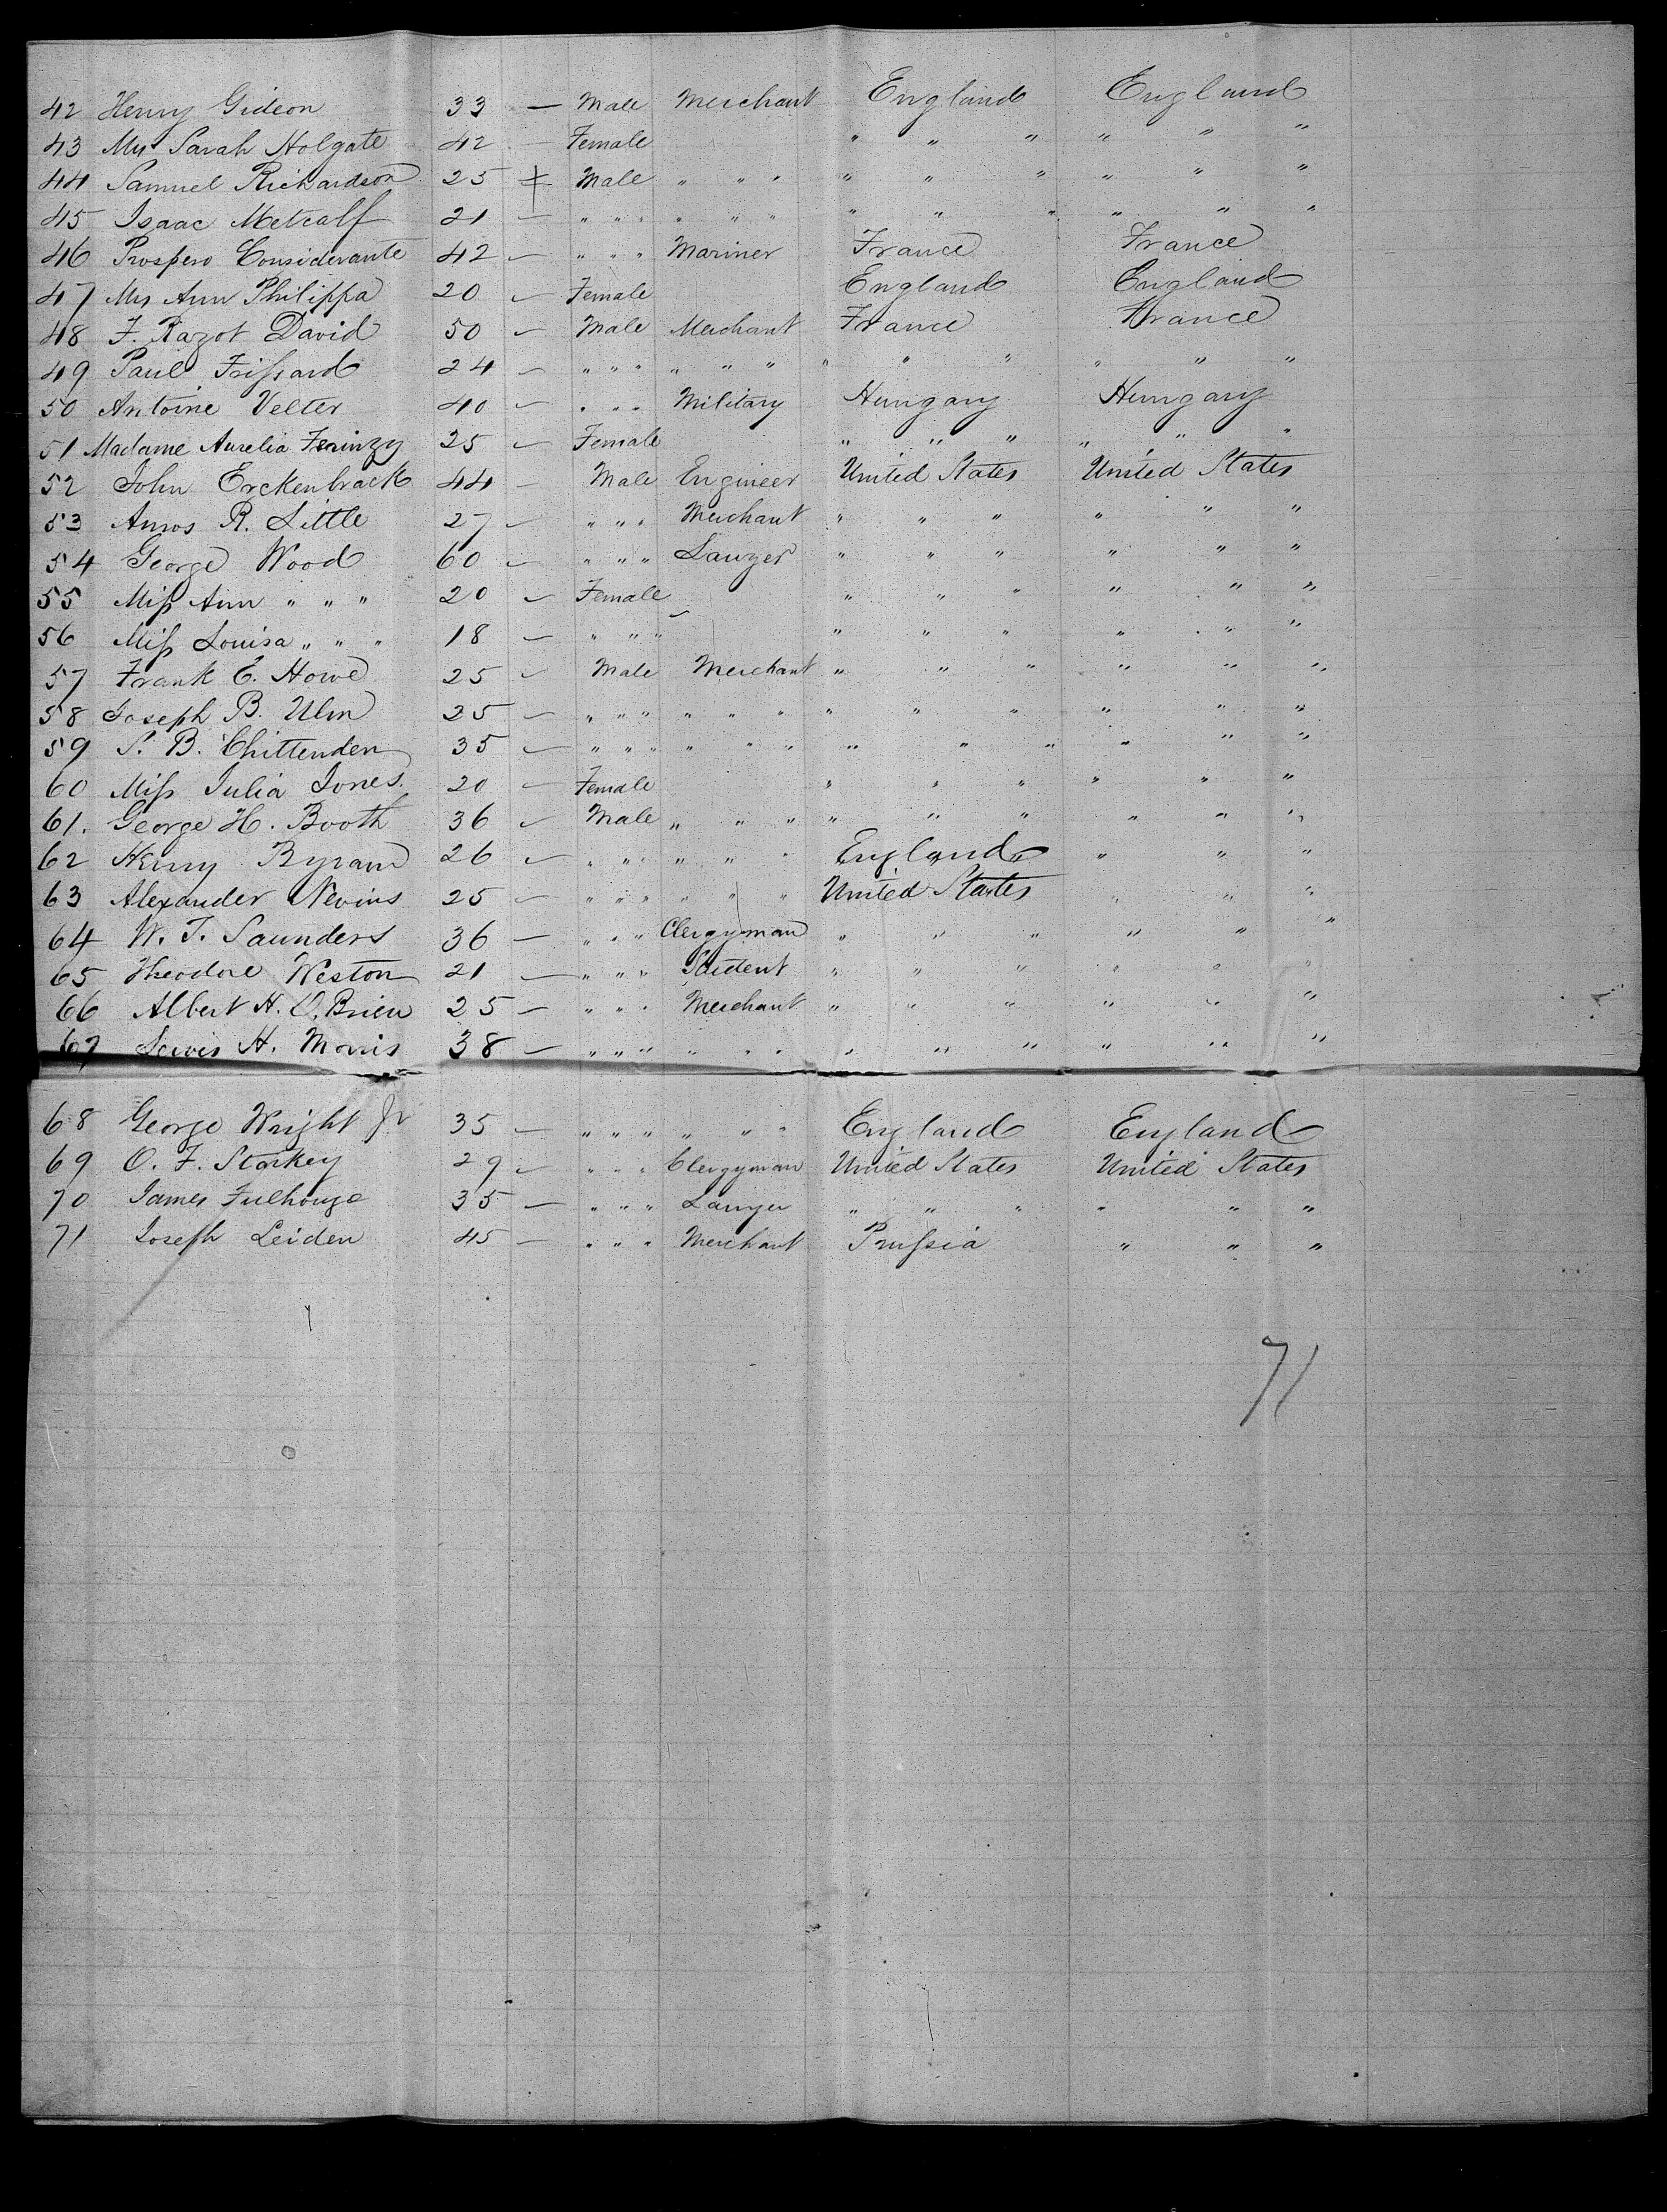 42 Henry Gideon 33 — Male Merchant England England
43 Mrs Sarah Holgate 42 — Female " " " " " "
44 Samuel Richardson 25 Male " " " " " " " " "
45 Isaac Metcalf 21 — " " " " " " " " " " " "
46 Prospero Considerante 42 — " " " Mariner France France
47 Mrs Ann Philippa 20 — Female England England
48 F. Razot David 50 — Male Merchant France France
49 Paul Frissard 24 — " " " " " " " " " " " "
50 Antoine Velter 40 — " " " Military Hungary Hungary
51 Madame Aurelia 25 — Female " " " " " "
52 John Erckenbrack 44 — Male Engineer United States United States
53 Amos R. Little 27 — " " " Merchant " " " " " "
54 George Wood 60 — " " " Lawyer " " " " " "
55 Miss Ann " " " 20 — Female " " " " " "
56 Miss Louisa " " " 18 — " " " " " " " " "
57 Frank E. Howe 25 — Male Merchant " " " " " "
58 Joseph B. Ulm 25 — " " " " " " " " " " " "
59 S. B. Chittenden 35 — " " " " " " " " " " " "
60 Miss Julia Jones. 20 — Female " " " " " "
61. George H. Booth 36 — Male " " " " " " " " "
62 Henry Byram 26 — " " " " " " England " " "
63 Alexander Nevins 25 — " " " " " " United States " " "
64 W. T. Saunders 36 — " " " Clergyman " " " " " "
65 Theodore Weston 21 — " " " Student " " " " " "
66 Albert H. O.Brien 25 — " " " Merchant " " " " " "
67 Lewis H. Morris 38 — " " " " " " " " " " " "
68 George Wright Jr 35 — " " " " " " England England
69 O. F. Starkey 29 — " " " Clergyman United States United States
70 James Fulhouze 35 — " " " Lawyer " " " " " "
71 Joseph Leiden 45 — " " " Merchant Prussia " " "
71